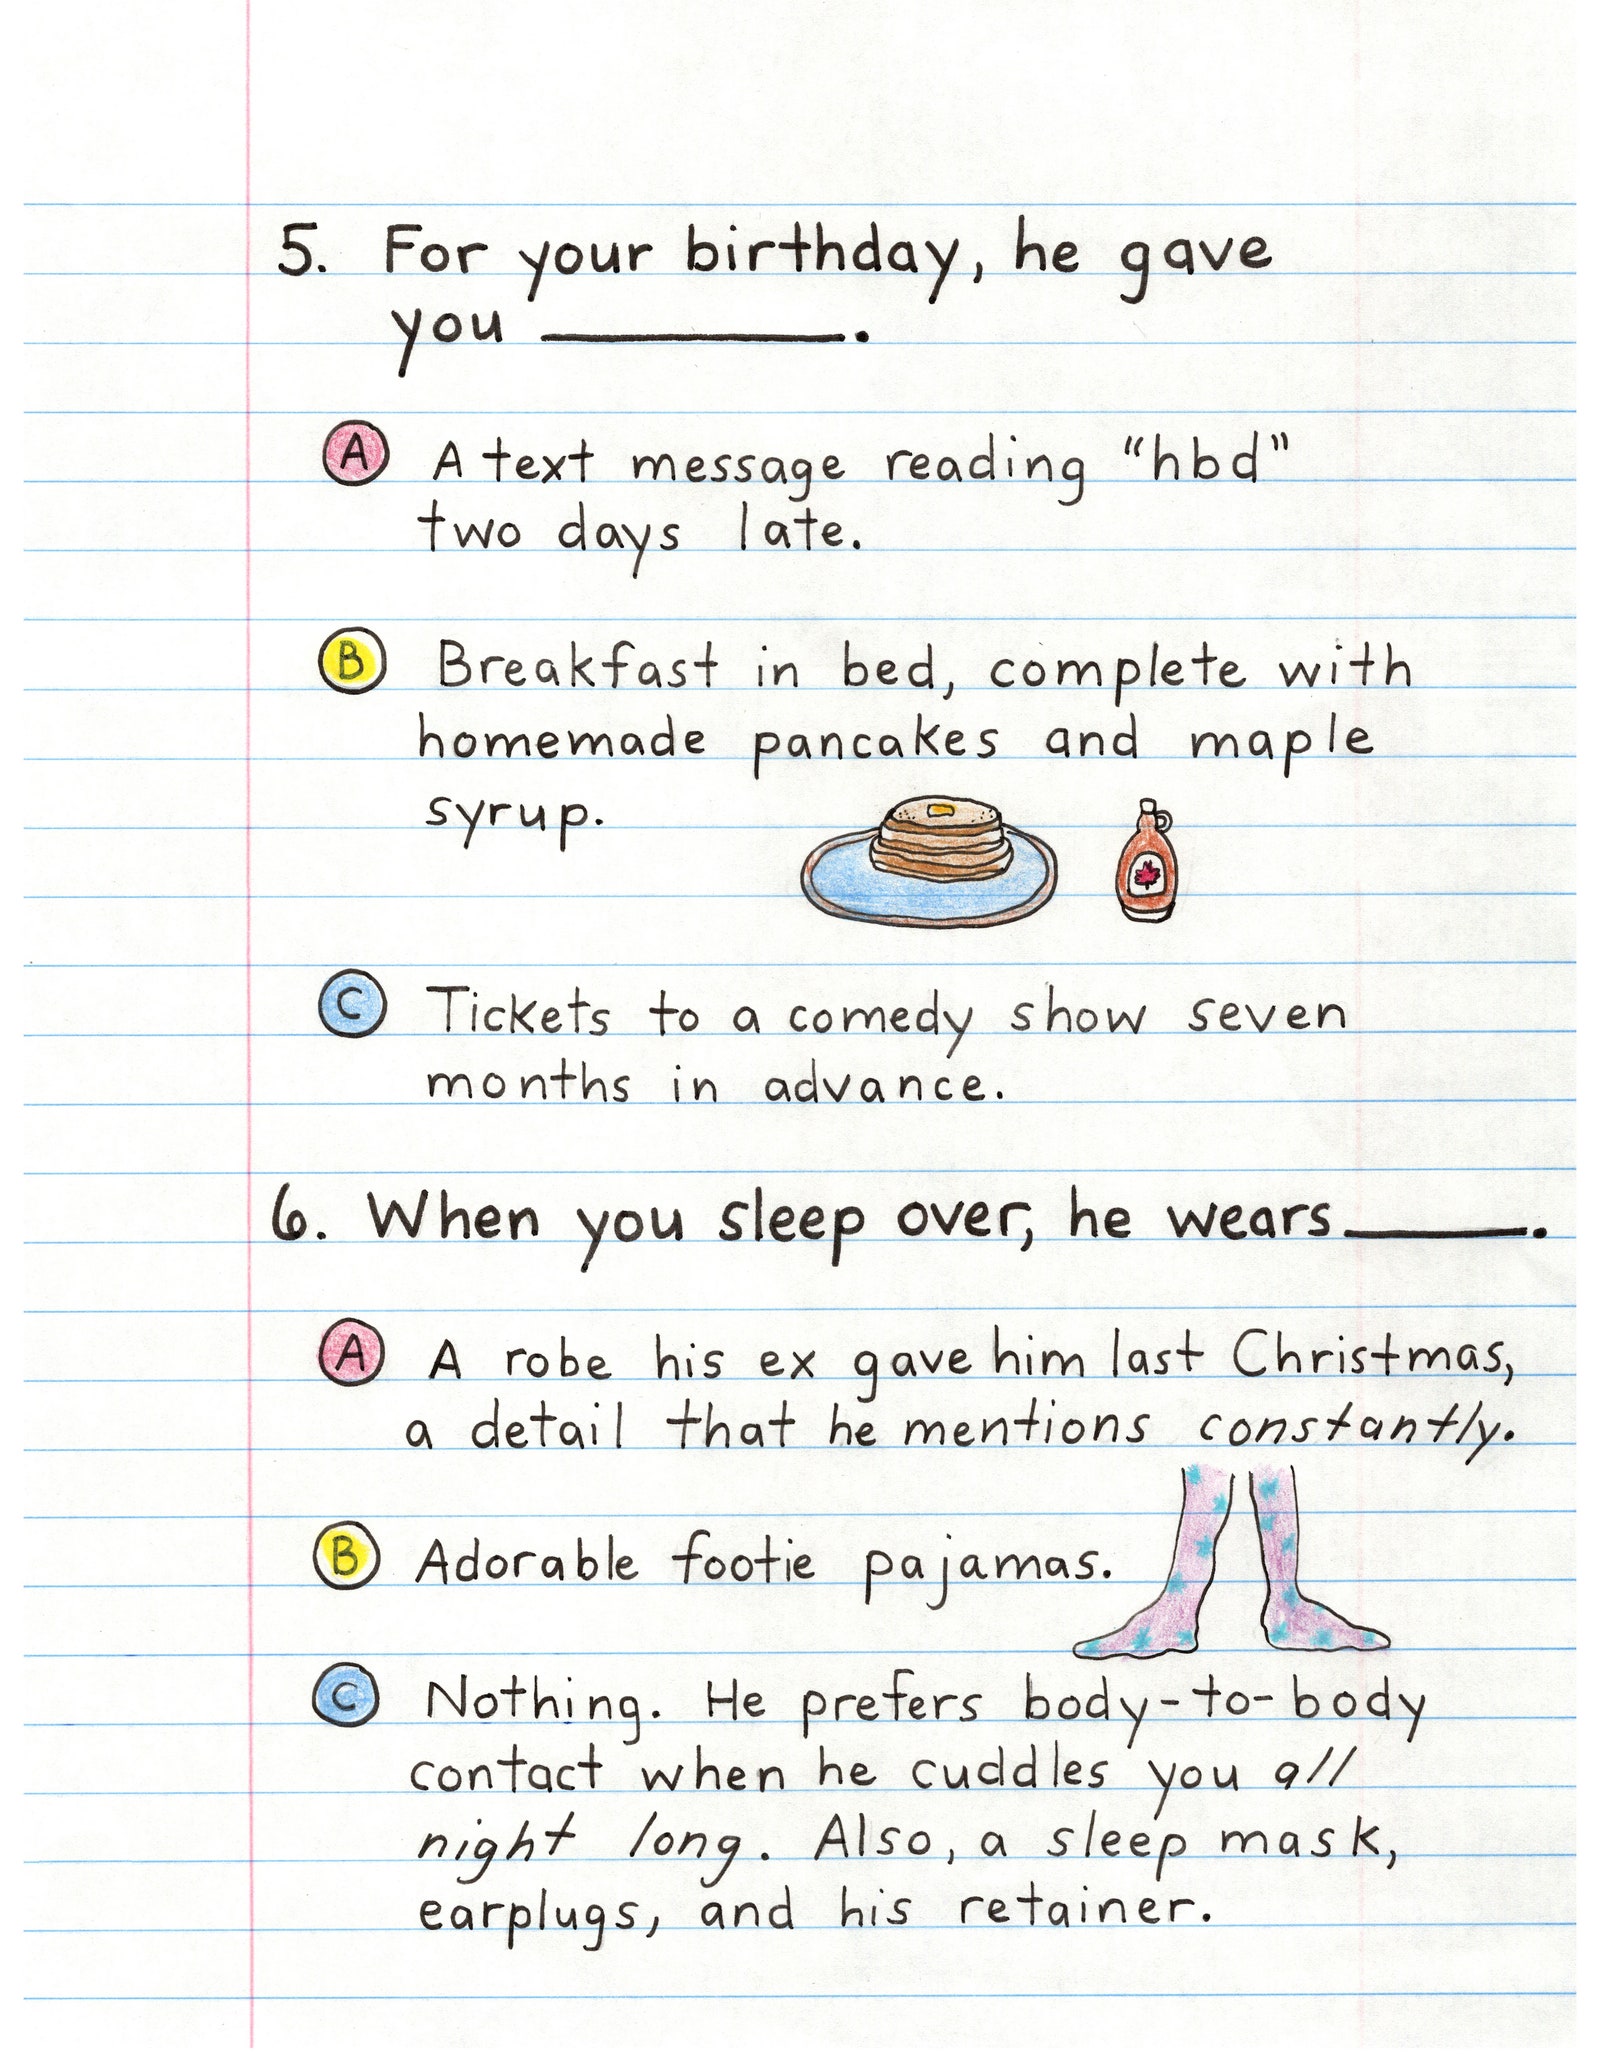 5. For your birthday, he gave
you __________.
A A text message reading "hbd"
two days late.
B Breakfast in bed, complete with
homemade pancakes and maple
syrup.
C Tickets to a comedy show seven
months in advance.
6. When you sleep over, he wears ______.
A A robe his ex gave him last Christmas,
a detail that he mentions constantly.
B Adorable footie pajamas.
C Nothing. He prefers body-to-body
contact when he cuddles you all
night long. Also, a sleep mask,
earplugs, and his retainer.